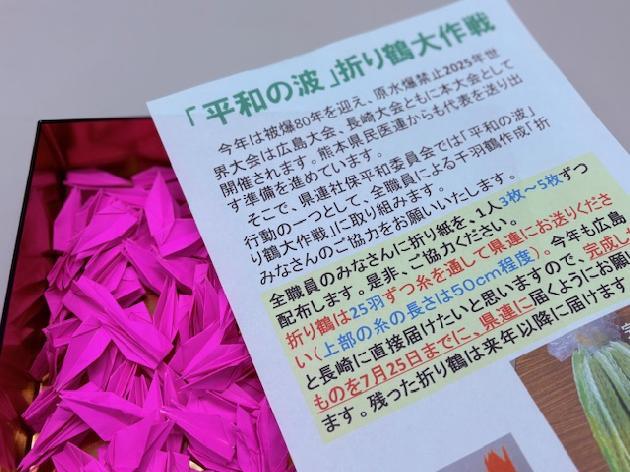 「平和の波」折り鶴大作戦
今年は被爆80年を迎え、原水爆禁止2025年世
界大会は広島大会、長崎大会ともに本大会として
開催されます。熊本県民医連からも代表を送り出
す準備を進めています。
そこで、県連社保平和委員会では「平和の波」
行動の一つとして、全職員による千羽鶴作成「折
り鶴大作戦」に取り組みます。
みなさんのご協力をお願いいたします。
全職員のみなさんに折り紙を、1人3枚～5枚ずつ
配布します。是非、ご協力ください。
折り鶴は25羽ずつ糸を通して県連にお送りくださ
い（上部の糸の長さは50cm程度）。今年も広島
と長崎に直接届けたいと思いますので、完成した
ものを7月25日までに、県連に届くようにお願い
ます。残った折り鶴は来年以降に届けます